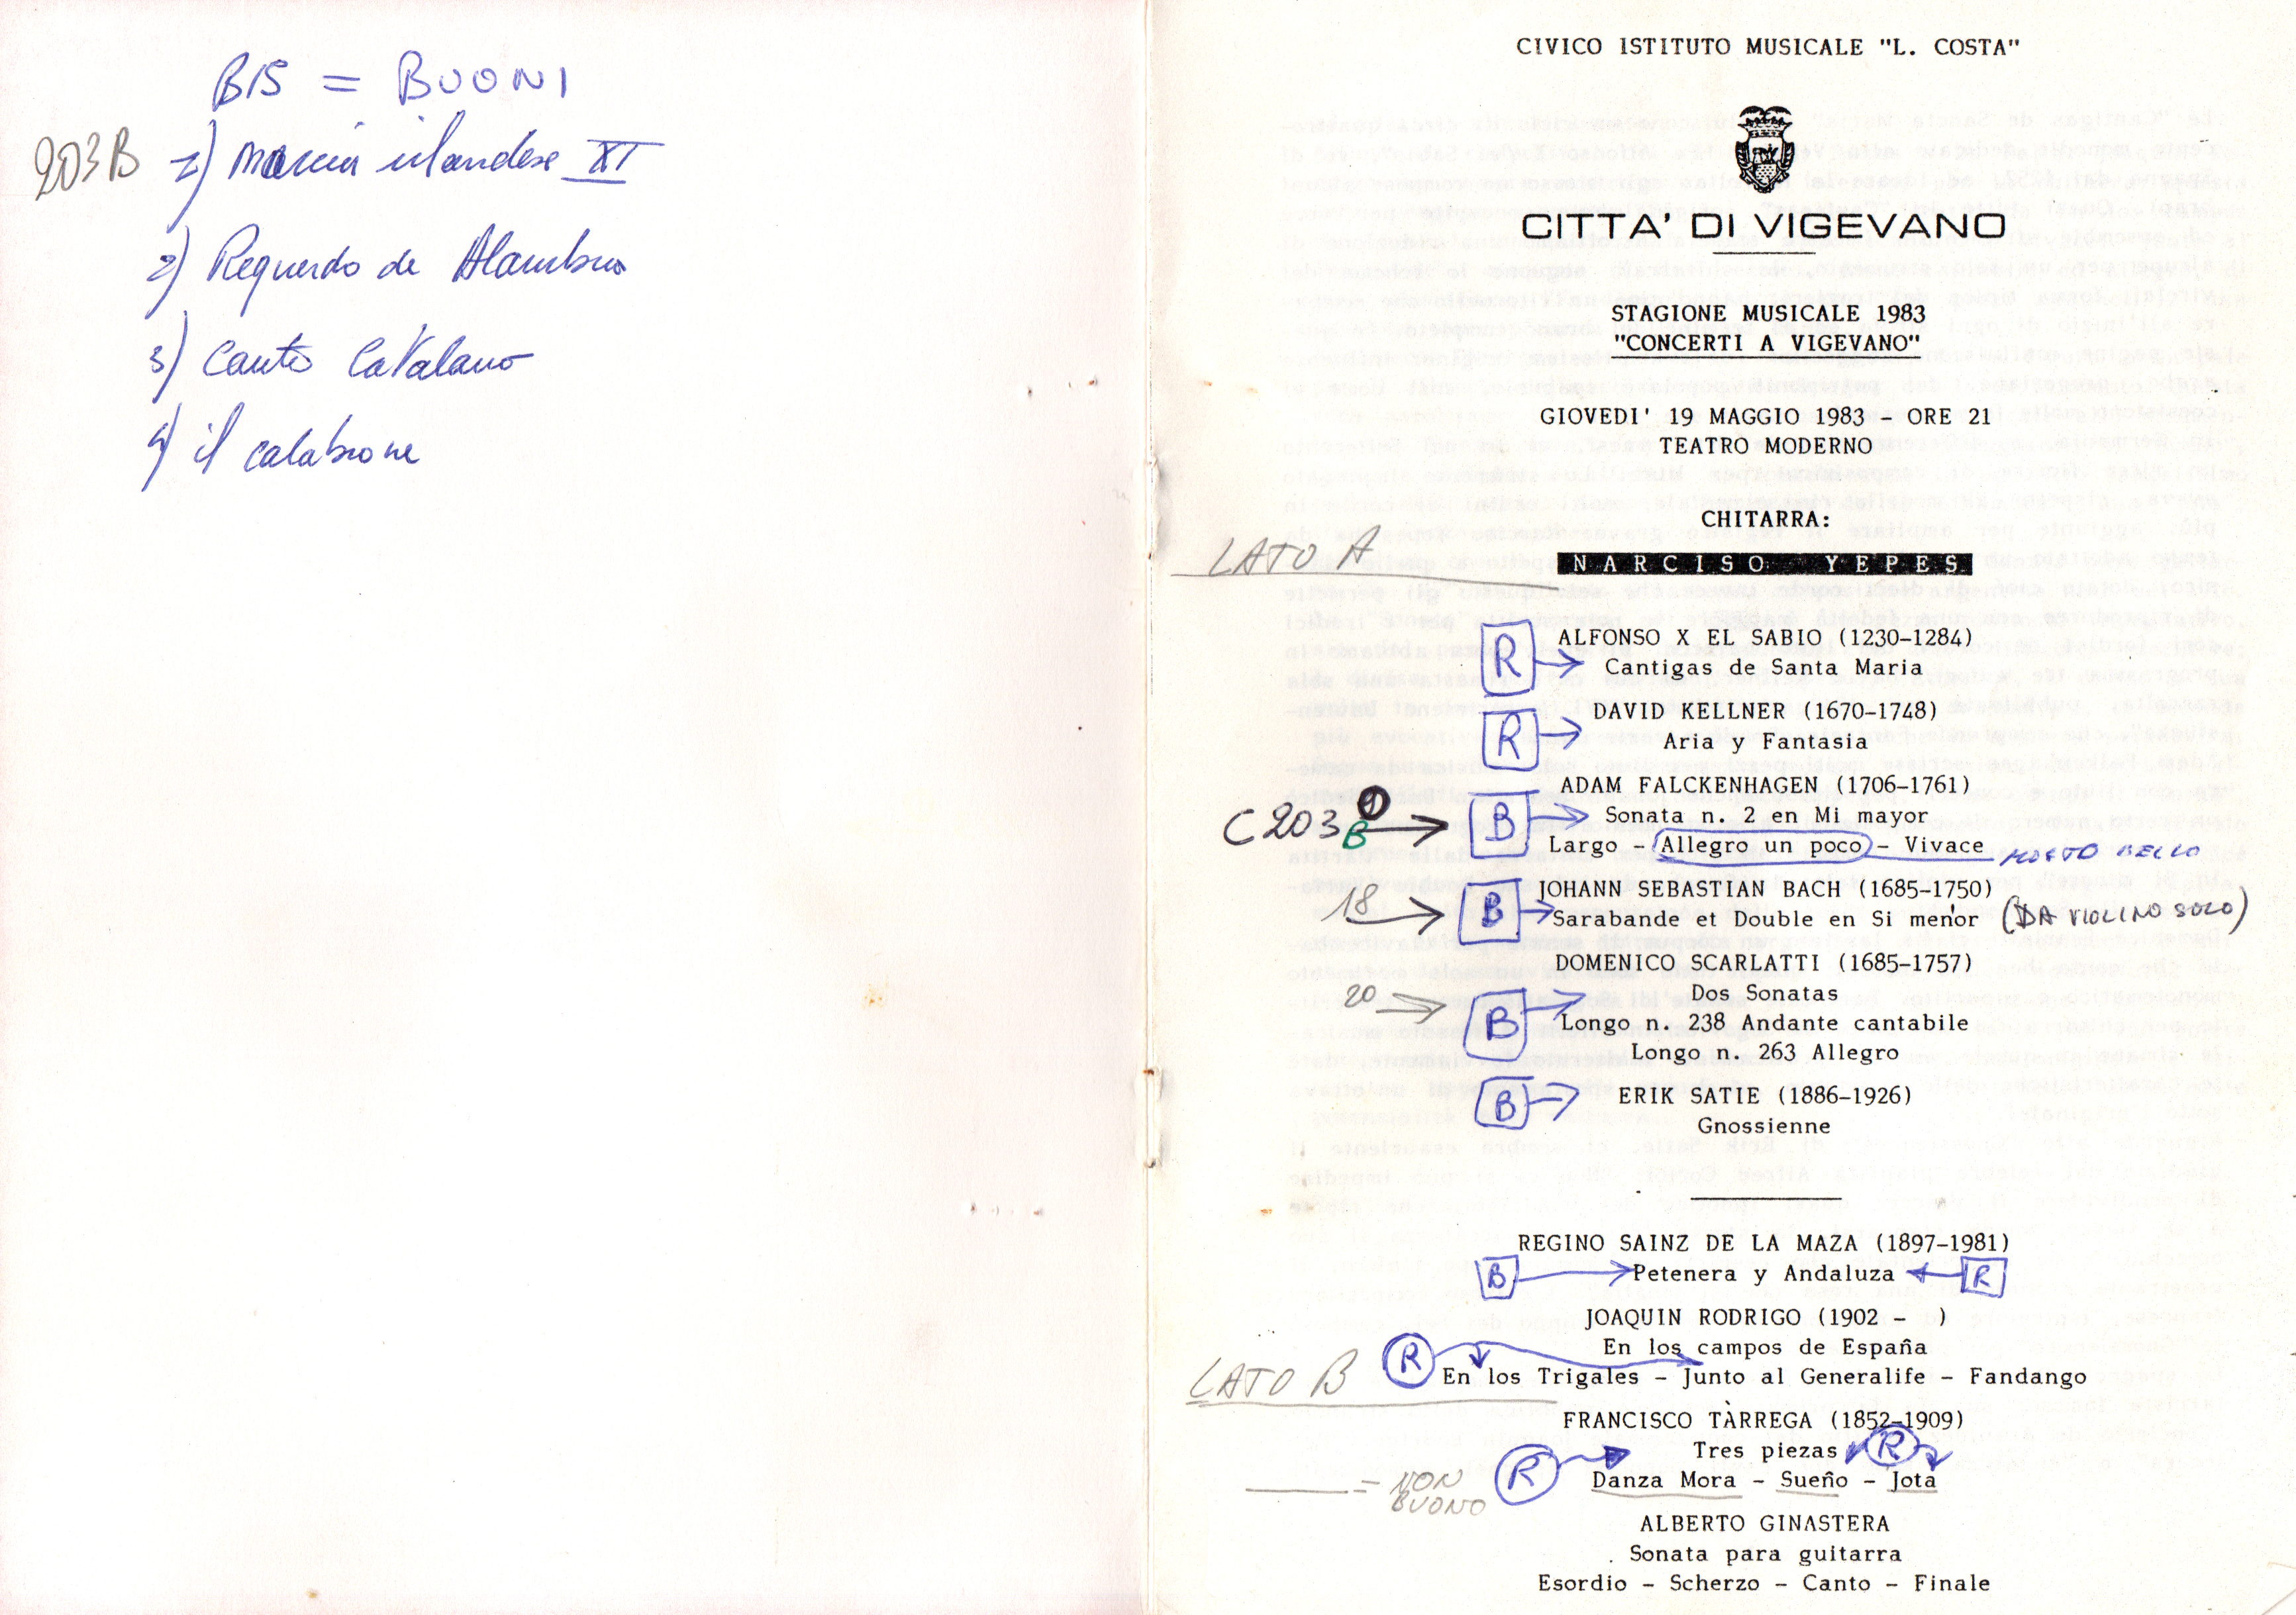 BIS = BUONI
203B 1) Marcia irlandese XI
2) Requerdo de Alambra
3) Canto Catalano
4) il calabrone
CIVICO ISTITUTO MUSICALE "L. COSTA"
CITTA' DI VIGEVANO
STAGIONE MUSICALE 1983
"CONCERTI A VIGEVANO"
GIOVEDI' 19 MAGGIO 1983 - ORE 21
TEATRO MODERNO
CHITARRA:
LATO A
NARCISO YEPES
R ALFONSO X EL SABIO (1230-1284)
Cantigas de Santa Maria
R DAVID KELLNER (1670-1748)
Aria y Fantasia
ADAM FALCKENHAGEN (1706-1761)
C203B 1 B Sonata n. 2 en Mi mayor
Largo - Allegro un poco - Vivace MOLTO BELLO
JOHANN SEBASTIAN BACH (1685-1750)
18 B Sarabande et Double en Si menor (DA VIOLINO SOLO)
DOMENICO SCARLATTI (1685-1757)
20 B Dos Sonatas
Longo n. 238 Andante cantabile
Longo n. 263 Allegro
B ERIK SATIE (1886-1926)
Gnossienne
REGINO SAINZ DE LA MAZA (1897-1981)
B Petenera y Andaluza R
JOAQUIN RODRIGO (1902 - )
En los campos de España
R En los Trigales - Junto al Generalife - Fandango
LATO B
FRANCISCO TÀRREGA (1852-1909)
Tres piezas R
R Danza Mora - Sueño - Jota
= NON BUONO
ALBERTO GINASTERA
Sonata para guitarra
Esordio - Scherzo - Canto - Finale